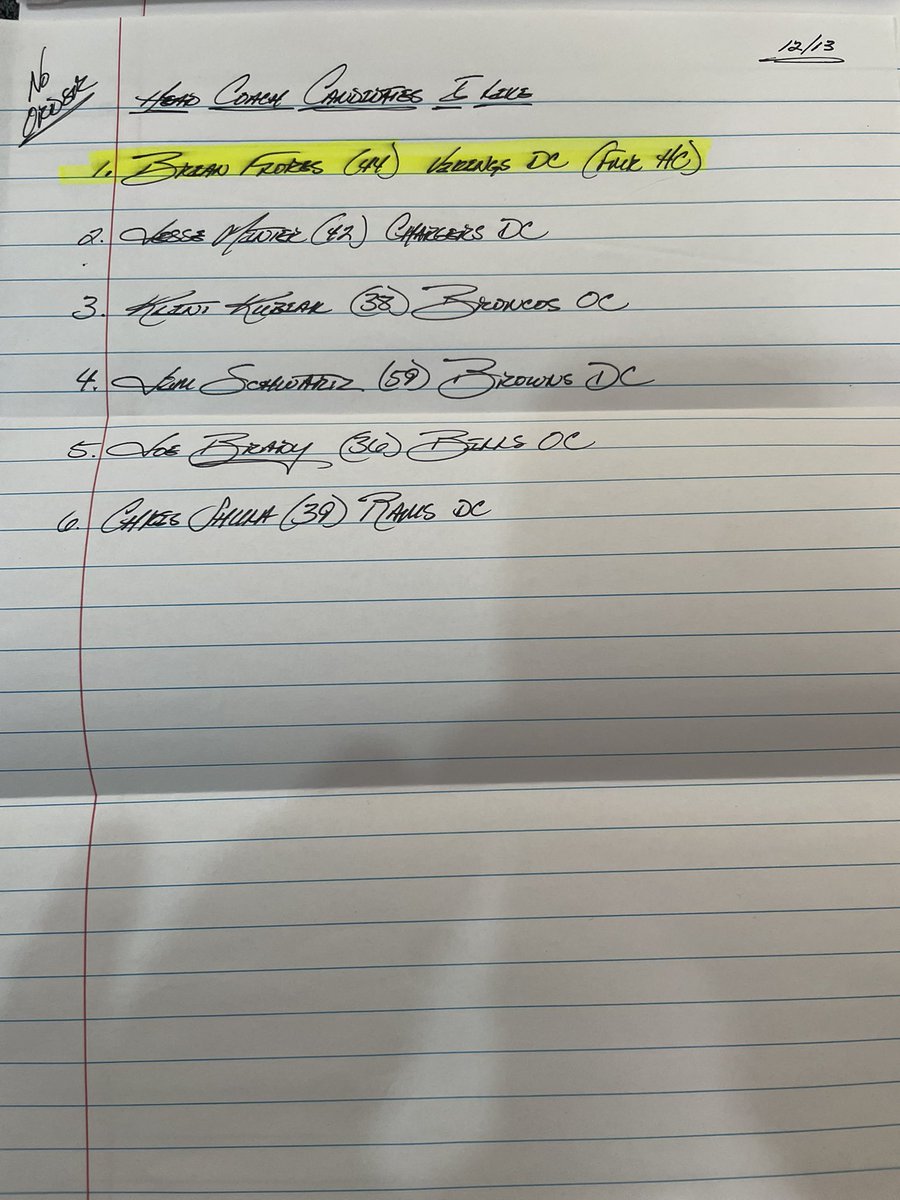 12/13
No
Order
Head Coach Candidates I Like
1. Brian Flores (44) Vikings DC (Fmr HC)
2. Jesse Minter (42) Chargers DC
3. Klint Kubiak (38) Broncos OC
4. Jim Schwartz (59) Browns DC
5. Joe Brady (36) Bills OC
6. Chris Shula (39) Rams DC